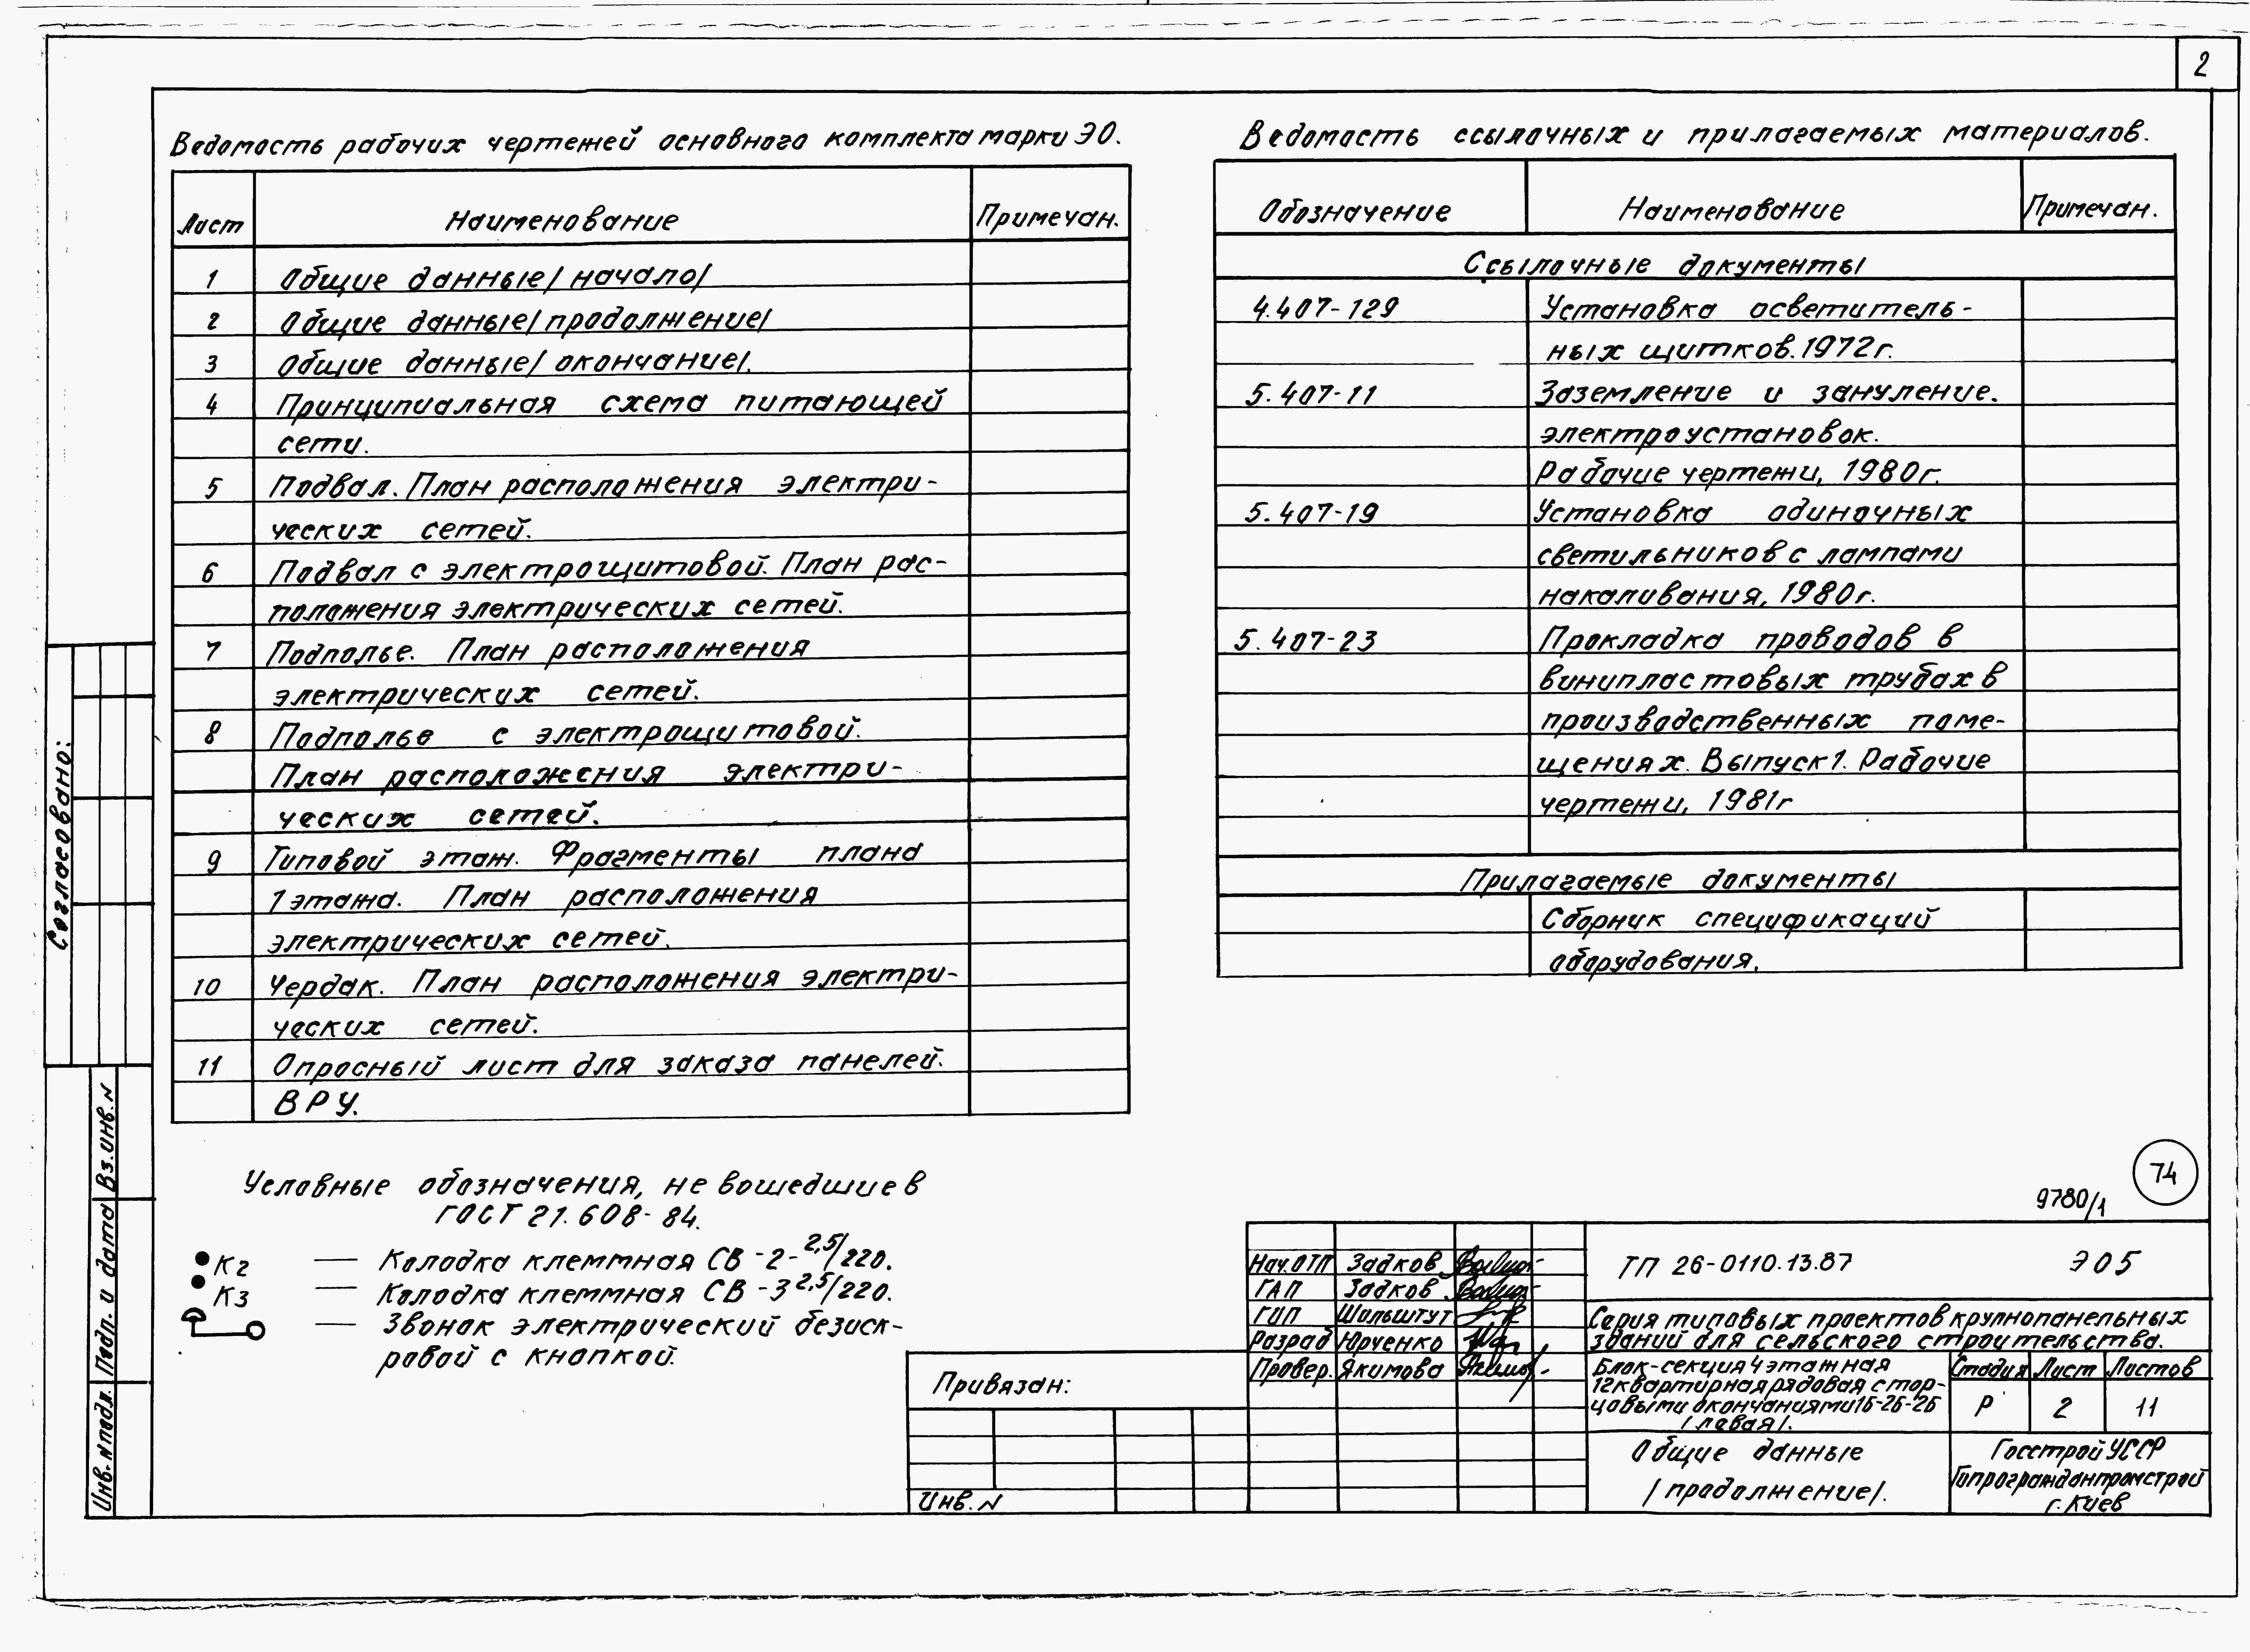 2
Ведомость рабочих чертежей основного комплекта марки ЭО.
Лист Наименование Примечан.
1 Общие данные/начало/
2 Общие данные/продолжение/
3 Общие данные/окончание/.
4 Принципиальная схема питающей
сети.
5 Подвал. План расположения электри-
ческих сетей.
6 Подвал с электрощитовой. План рас-
положения электрических сетей.
7 Подполье. План расположения
электрических сетей.
8 Подполье с электрощитовой.
План расположения электри-
ческих сетей.
9 Типовой этаж. Фрагменты плана
1 этажа. План расположения
электрических сетей.
10 Чердак. План расположения электри-
ческих сетей.
11 Опросный лист для заказа панелей.
ВРУ.
Ведомость ссылочных и прилагаемых материалов.
Обозначение Наименование Примечан.
Ссылочные документы
4.407-129 Установка осветитель-
ных щитков. 1972г.
5.407-11 Заземление и зануление.
электроустановок.
Рабочие чертежи, 1980г.
5.407-19 Установка одиночных
светильников с лампами
накаливания, 1980г.
5.407-23 Прокладка проводов в
винипластовых трубах в
производственных поме-
щениях. Выпуск 1. Рабочие
чертежи, 1981г
Прилагаемые документы
Сборник спецификаций
оборудования.
Условные обозначения, не вошедшие в
ГОСТ 21.608-84.
К2 — Колодка клеммная СВ-2-2,5/220.
К3 — Колодка клеммная СВ-3 2,5/220.
— Звонок электрический безиск-
ровой с кнопкой.
Согласовано:
Вз.инв.N
Подп. и дата
Инв.N подл.
74
9780/1
Привязан:
Инв. N
Нач.ОТП Задков
ГАП Задков
ГИП Шильштут
Разраб Юрченко
Провер. Якимова
ТП 26-0110.13.87 ЭО5
Серия типовых проектов крупнопанельных
зданий для сельского строительства.
Блок-секция 4 этажная
12 квартирная рядовая с тор-
цовыми окончаниями 1Б-2Б-2Б
/левая/.
Стадия Лист Листов
Р 2 11
Общие данные
/продолжение/.
Госстрой УССР
Гипрогражданпромстрой
г. Киев